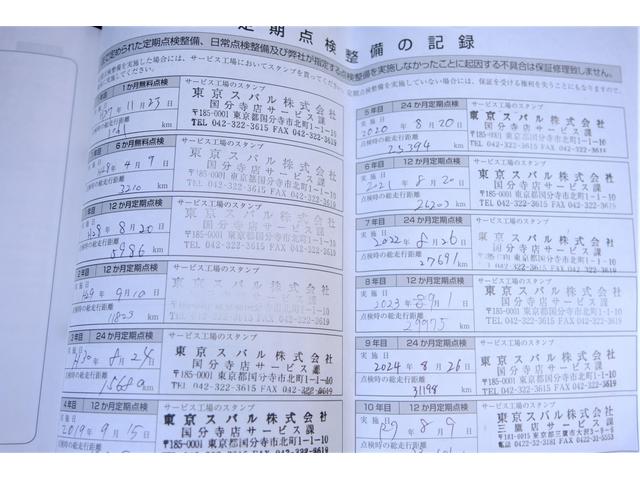 定期点検整備の記録
で定められた定期点検整備、日常点検整備及び弊社が指定する点検整備を実施しなかったことに起因する不具合は保証修理致しません。
を実施した場合には、サービス工場においてスタンプを貰ってください
実施していない場合は、保証を受ける権利を失うことにもなりますので、
してください。
1か月無料点検
サービス工場のスタンプ
年 11 月 23 日
東京スバル株式会社
国分寺店サービス課
〒185-0001 東京都国分寺市北町1-1-10
TEL 042-322-3615 FAX 042-322-3619
点検時の総走行距離
km
6か月無料点検
サービス工場のスタンプ
H28 年 4 月 9 日
東京スバル株式会社
国分寺店サービス課
〒185-0001 東京都国分寺市北町1-1-10
TEL 042-322-3615 FAX 042-322-3619
検時の総走行距離
3210 km
年目 12か月定期点検
サービス工場のスタンプ
H28 年 8 月 20 日
東京スバル株式会社
国分寺店サービス課
〒185-0001 東京都国分寺市北町1-1-10
TEL 042-322-3615 FAX 042-322-3619
検時の総走行距離
5986 km
2年目 12か月定期点検
サービス工場のスタンプ
実施日
H29 年 9 月 10 日
点検時の総走行距離
km
3年目 24か月定期点検
サービス工場のスタンプ
実施日
H30 年 8 月 24 日
東京スバル株式会社
国分寺店サービス課
〒185-0001 東京都国分寺市北町1-1-10
TEL 042-322-3615 FAX 042-322-3619
点検時の総走行距離
km
4年目 12か月定期点検
サービス工場のスタンプ
実施日
2019 年 9 月 15 日
東京スバル株式会社
国分寺店サービス課
〒185-0001 東京都国分寺市北町1-1-10
TEL 042-322-3615 FAX 042-322-3619
点検時の総走行距離
5年目 24か月定期点検
サービス工場のスタンプ
実施日
2020 年 8 月 20 日
東京スバル株式会社
国分寺店サービス課
〒185-0001 東京都国分寺市北町1-1-10
TEL 042-322-3615 FAX 042-322-3619
点検時の総走行距離
25394 km
6年目 12か月定期点検
サービス工場のスタンプ
実施日
2021 年 8 月 20 日
東京スバル株式会社
国分寺店サービス課
〒185-0001 東京都国分寺市北町1-1-10
TEL 042-322-3615 FAX 042-322-3619
点検時の総走行距離
26203 km
7年目 24か月定期点検
サービス工場のスタンプ
実施日
2022 年 8 月 26 日
東京スバル株式会社
国分寺店サービス課
〒185-0001 東京都国分寺市北町1-1-10
TEL 042-322-3615 FAX 042-322-3619
点検時の総走行距離
27691 km
8年目 12か月定期点検
サービス工場のスタンプ
実施日
2023 年 9 月 1 日
東京スバル株式会社
国分寺店サービス課
〒185-0001 東京都国分寺市北町1-1-10
TEL 042-322-3615 FAX 042-322-3619
点検時の総走行距離
29075 km
9年目 24か月定期点検
サービス工場のスタンプ
実施日
2024 年 8 月 26 日
東京スバル株式会社
国分寺店サービス課
〒185-0001 東京都国分寺市北町1-1-10
TEL 042-322-3615 FAX 042-322-3619
点検時の総走行距離
31198 km
10年目 12か月定期点検
サービス工場のスタンプ
実施日
年 8 月 9 日
東京スバル株式会社
三鷹店サービス課
〒181-0015 東京都三鷹市大沢3-9-6
電話 0422-32-8151 FAX 0422-31-5553
点検時の総走行距離
km